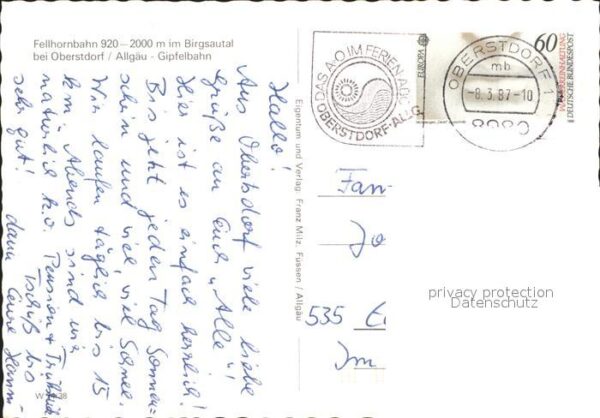 Fellhornbahn 920–2000 m im Birgsautal
bei Oberstdorf / Allgäu - Gipfelbahn
Hallo!
Aus Oberstdorf viele liebe
Grüße an Euch „Alle"!
Hier ist es einfach herrlich!
Bis jetzt jeden Tag Sonnen=
schein und viel, viel Schnee.
Wir laufen täglich bis 15
km. Abends sind wir
natürlich k.o. Pension + Frühstück
sehr gut! Tschüß bis
dann Eure
Eigentum und Verlag: Franz Milz, Füssen / Allgäu
DAS A·O IM FERIEN-ABC
OBERSTDORF·ALLG.
EUROPA
60
DEUTSCHE BUNDESPOST
OBERSTDORF 1
mb
-8.3.87-10
8980
Fam
Jo
535
Im
privacy protection
Datenschutz